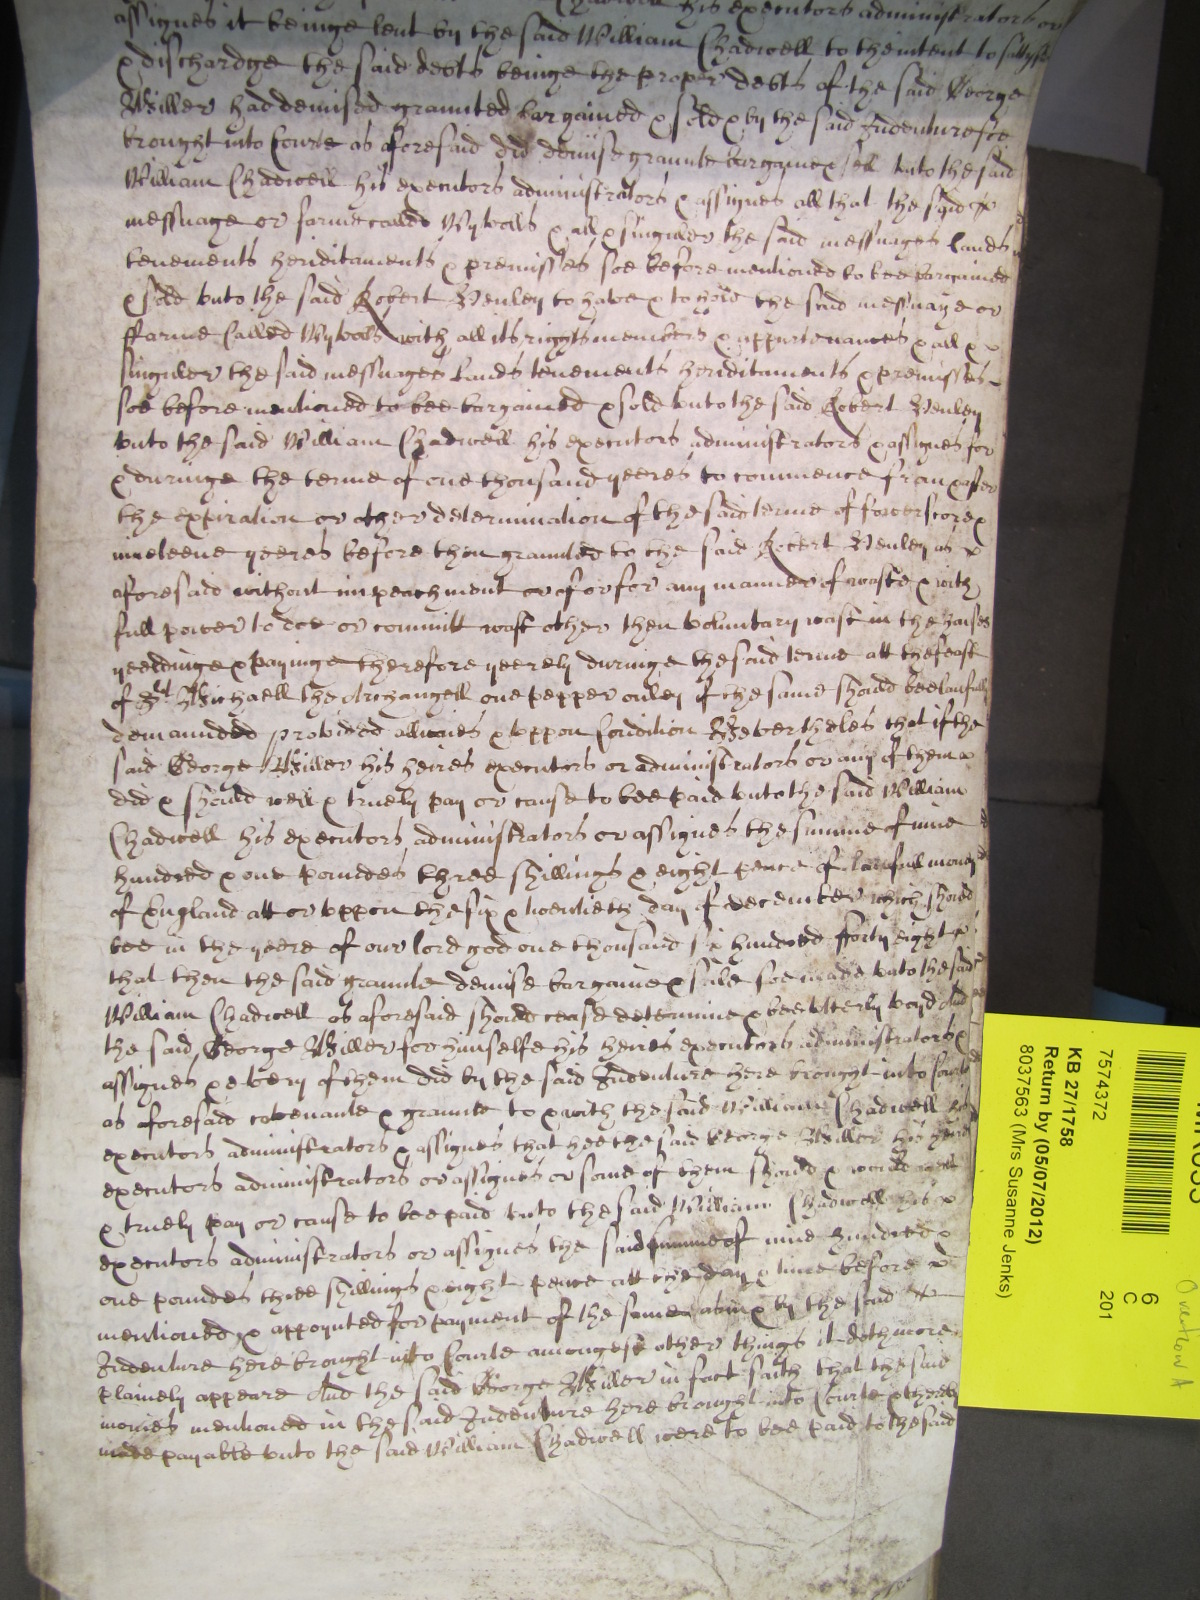 Chadwell his executors administrators or
assignes it beinge lent by the said William Chadwell to thentent to sattisfie
& dischardge the said debts beinge the proper debts of the said George
Miller had demised graunted bargained & sold & by the said Indenture soe
brought into Courte as aforesaid did demise graunte bargaine & sell unto the said
William Chadwell his executors administrators & assignes all that the said
messuage or farme called Mywoods & all & singuler the said messuages lands
tenements heriditaments & premisses soe before mentioned to bee bargained
& sold unto the said Robert Henley to have & to hold the said messuage or
ffarme Called Mywoods with all its rights members & appurtenances & all &
singuler the said messuages Lands tenements heriditaments & premisses
soe before mentioned to bee bargained & sold unto the said Robert Henley
unto the said William Chadwell his executors administrators & assignes for
& duringe the terme of one thousand yeeres to commence from & after
the expiration or other determination of the said terme of fowerscore &
nineteene yeeres before then graunted to the said Robert Henley as
aforesaid without impeachment or of or for any manner of waste & with
full power to doe or committ wast other then voluntary wast in the houses
yeeldinge & payinge therefore yeerely duringe the said terme att the feast
of St Michaell the Archangell one pepper onley if the same should bee lawfully
demaunded provided allwaies & uppon Condition Neverthelес that if the
said George Miller his heires executors or administrators or any of them
did & should well & truely pay or cause to bee paid unto the said William
Chadwell his executors administrators or assignes the summe of nine
hundred & one poundes three shillings & eight pence of lawfull money
of England att or uppon the six & twentieth day of december which should
bee in the yeere of our lord god one thousand six hundred fforty eight
that then the said graunte demise bargaine & sale soe made unto the said
William Chadwell as aforesaid should cease determine & bee utterly voyd And
the said George Miller for himselfe his heires executors administrators &
assignes & every of them did by the said Indenture here brought into Courte
as aforesaid covenante & graunte to & with the said William Chadwell his
executors administrators & assignes that hee the said George Miller his heires
executors administrators or assignes or some of them should & would well
& truely pay or cause to bee paid unto the said William Chadwell his
executors administrators or assignes the said summe of nine hundred &
one poundes three shillings & eight pence att the day & time before
mentioned & appoynted for payment of the same as in & by the said
Indenture here brought into Courte amongest other things it doth more
plainely appeare And the said George Miller in fact saith that the said
monies mentioned in the said Indenture here brought into Courte & thereby
made payable unto the said William Chadwell were to bee paid to the said
7574372
201
KB 27/1758
Return by (05/07/2012)
8037563 (Mrs Susanne Jenks)
6
C